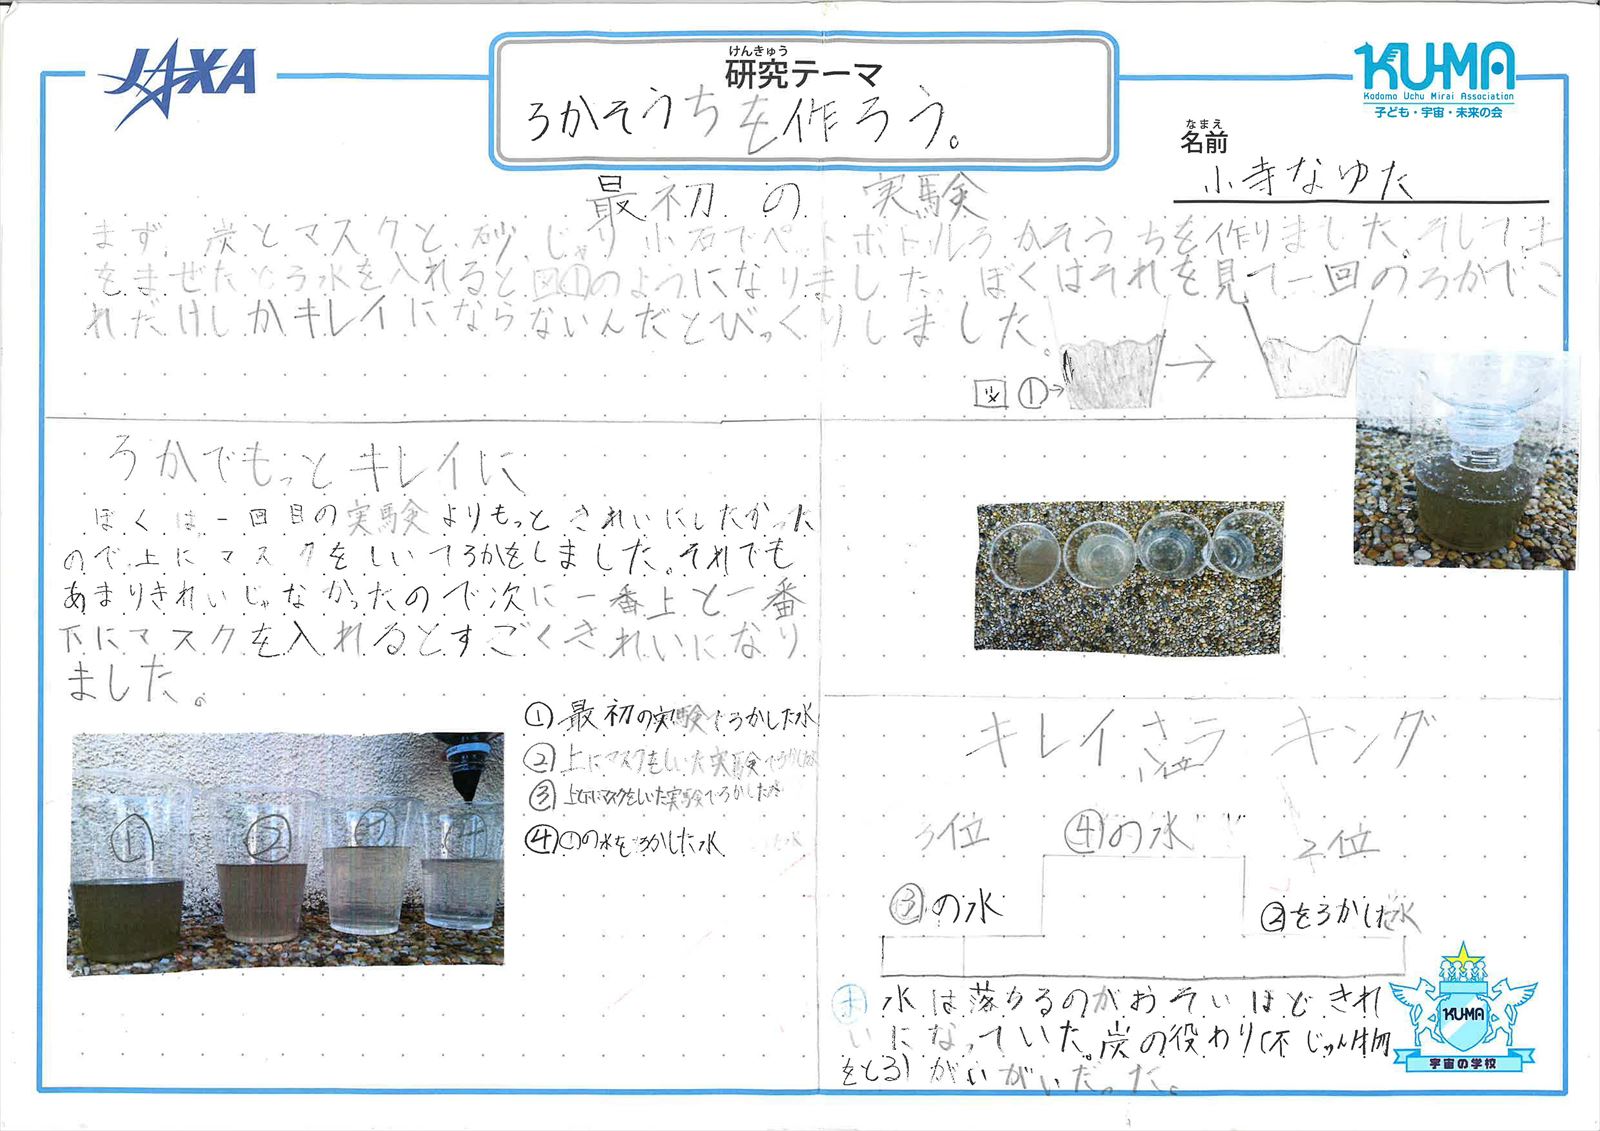 JAXA
けんきゅう
研究テーマ
ろかそうちを作ろう。
KUMA
Kodomo Uchu Mirai Association
子ども・宇宙・未来の会
なまえ
名前
小寺なゆた
最初の実験
まず、炭とマスクと、砂、じゃり、小石でペットボトルろかそうちを作りました。そして土
をまぜたどろ水を入れると図①のようになりました。ぼくはそれを見て一回のろかでこ
れだけしかキレイにならないんだとびっくりしました。
図①→
ろかでもっとキレイに
ぼくは一回目の実験よりもっときれいにしたかった
ので上にマスクをしいてろかをしました。それでも
あまりきれいじゃなかったので次に一番上と一番
下にマスクを入れるとすごくきれいになり
ました。
①最初の実験でろかした水
②上にマスクをしいた実験でろかした水
③上下にマスクをしいた実験でろかした水
④①の水をろかした水
① ② ③ ④
キレイさラキング
1位
3位 ④の水 2位
③の水 ②をろかした水
ま 水は落ちるのがおそいほどきれ
いになっていた。炭の役わり(不じゅん物
をとる)がいがいだった。
KUMA
宇宙の学校